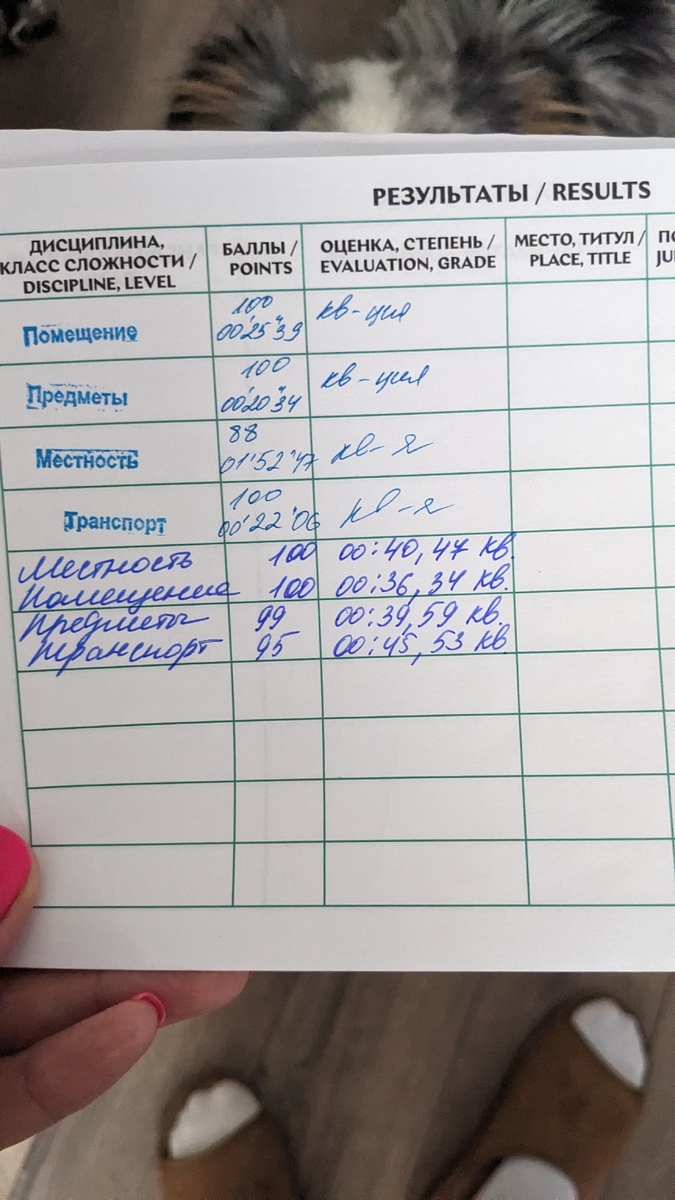 РЕЗУЛЬТАТЫ / RESULTS
ДИСЦИПЛИНА,
КЛАСС СЛОЖНОСТИ /
DISCIPLINE, LEVEL
БАЛЛЫ /
POINTS
ОЦЕНКА, СТЕПЕНЬ /
EVALUATION, GRADE
МЕСТО, ТИТУЛ /
PLACE, TITLE
Помещение
100
00'25"39
кв-ция
Предметы
100
00'20"34
кв-ция
Местность
88
01'52"47
кв-я
Транспорт
100
00'22"06
кв-я
Местность 100 00:40,47 кв.
Помещение 100 00:36,34 кв.
Предметы 99 00:39,59 кв.
Транспорт 95 00:45,53 кв